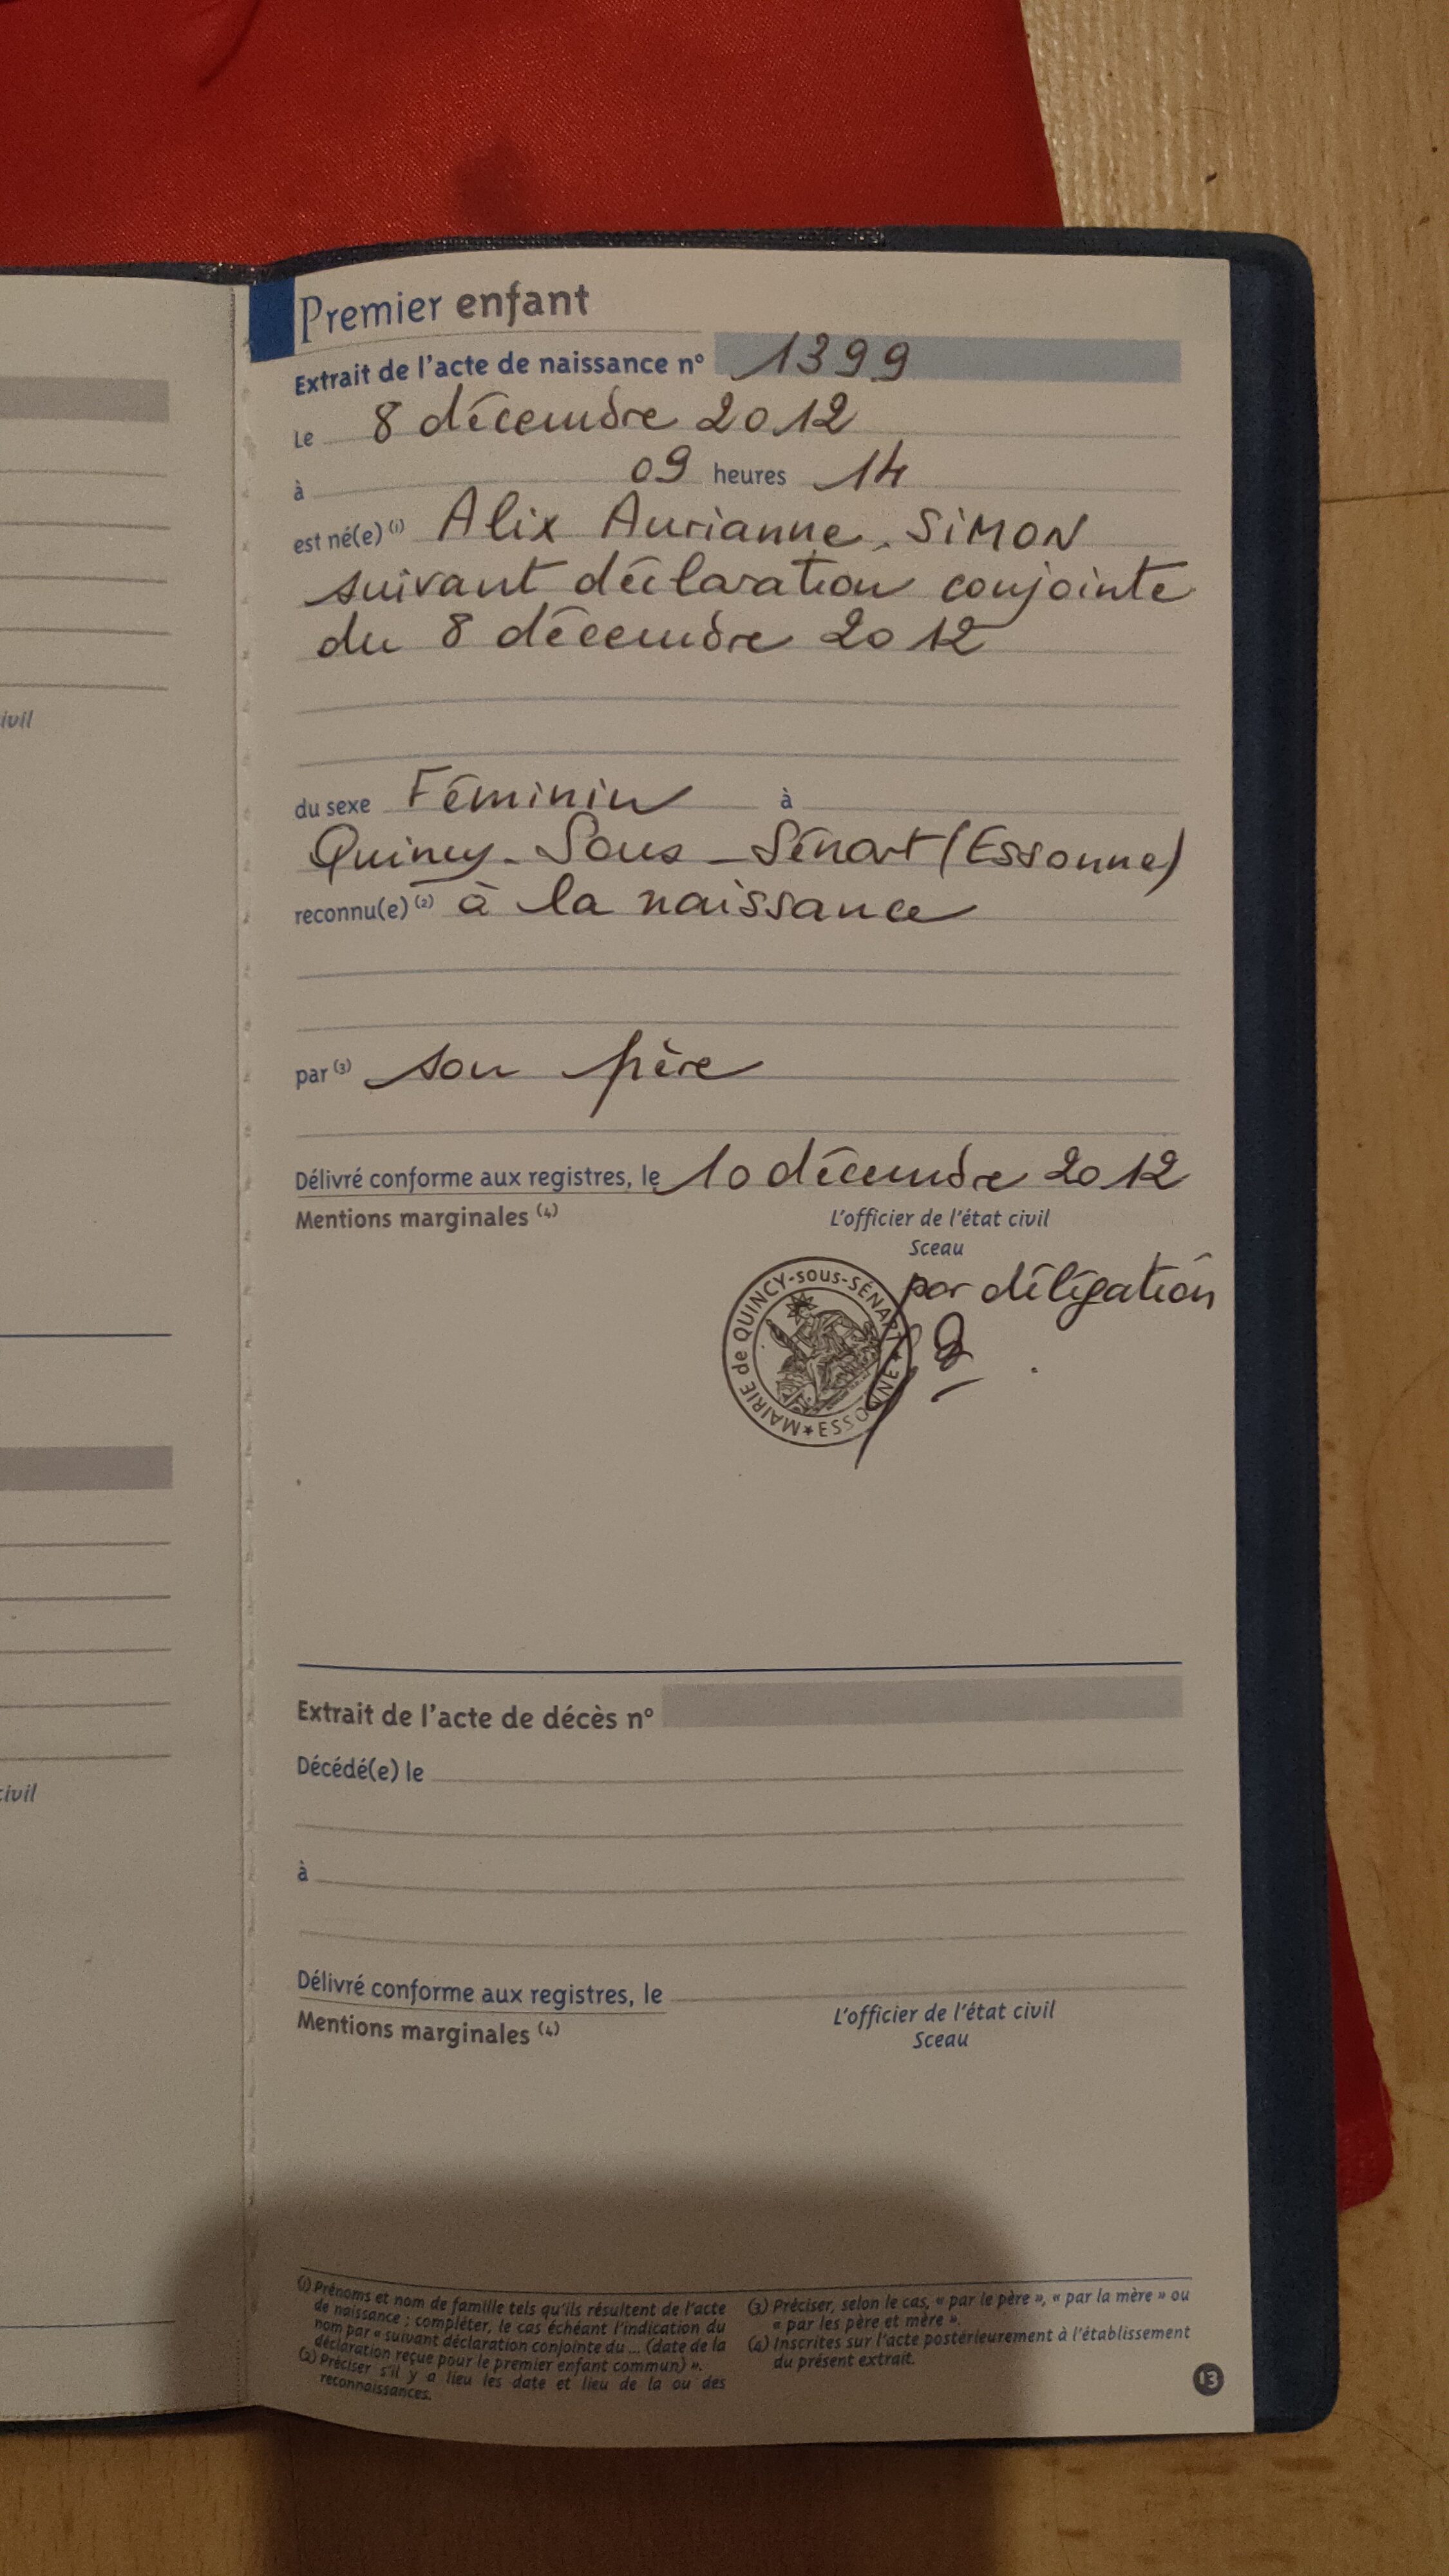 Premier enfant
Extrait de l'acte de naissance n° 1399
Le 8 décembre 2012
à 09 heures 14
est né(e) (1) Alix Aurianne, SIMON
suivant déclaration conjointe
du 8 décembre 2012
du sexe Féminin à
Quincy-Sous-Sénart (Essonne)
reconnu(e) (2) à la naissance
par (3) son père
Délivré conforme aux registres, le 10 décembre 2012
Mentions marginales (4)
L'officier de l'état civil
Sceau
par délégation
MAIRIE de QUINCY-sous-SÉNART
★ ESSONNE ★
Extrait de l'acte de décès n°
Décédé(e) le
à
Délivré conforme aux registres, le
Mentions marginales (4)
L'officier de l'état civil
Sceau
(1) Prénoms et nom de famille tels qu'ils résultent de l'acte
de naissance ; compléter, le cas échéant l'indication du
nom par « suivant déclaration conjointe du ... (date de la
déclaration reçue pour le premier enfant commun) ».
(2) Préciser s'il y a lieu les date et lieu de la ou des
reconnaissances.
(3) Préciser, selon le cas, « par le père », « par la mère » ou
« par les père et mère ».
(4) Inscrites sur l'acte postérieurement à l'établissement
du présent extrait.
13
ivil
civil